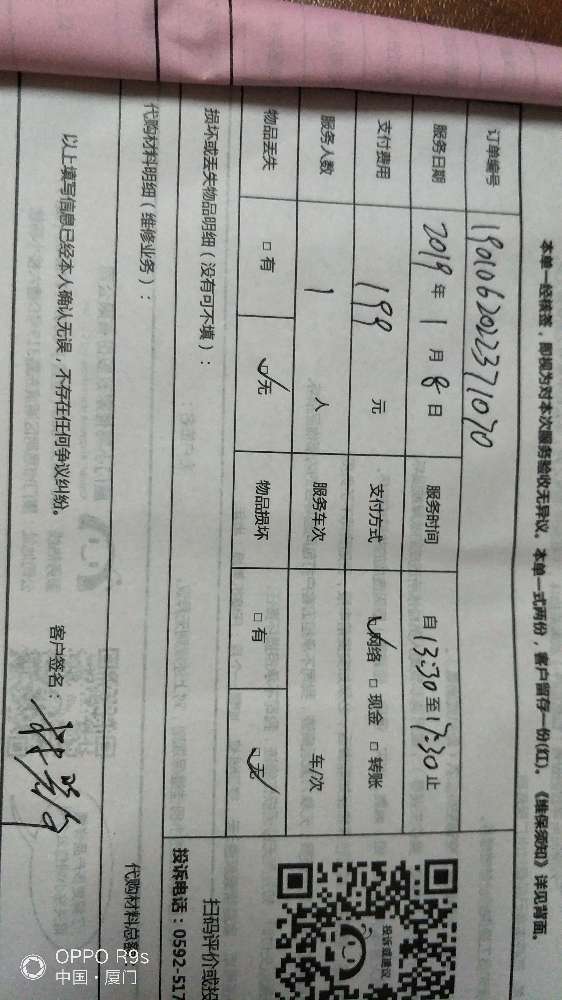 本单一经核签，即视为对本次服务验收无异议。本单一式两份，客户留存一份(红)。《维保须知》详见背面。
订单编号 190106202371070
服务日期 2019 年 1 月 8 日 服务时间 自 13:30 至 17:30 止
支付费用 199 元 支付方式 ☑网络 □现金 □转账
服务人数 1 人 服务车次 车/次
物品丢失 □有 ☑无 物品损坏 □有 ☑无
损坏或丢失物品明细（没有可不填）：
代购材料明细（维修业务）：
代购材料总
以上填写信息已经本人确认无误，不存在任何争议纠纷。 客户签名：
投诉或建议
扫码评价或投
投诉电话：0592-517
OPPO R9s
中国·厦门